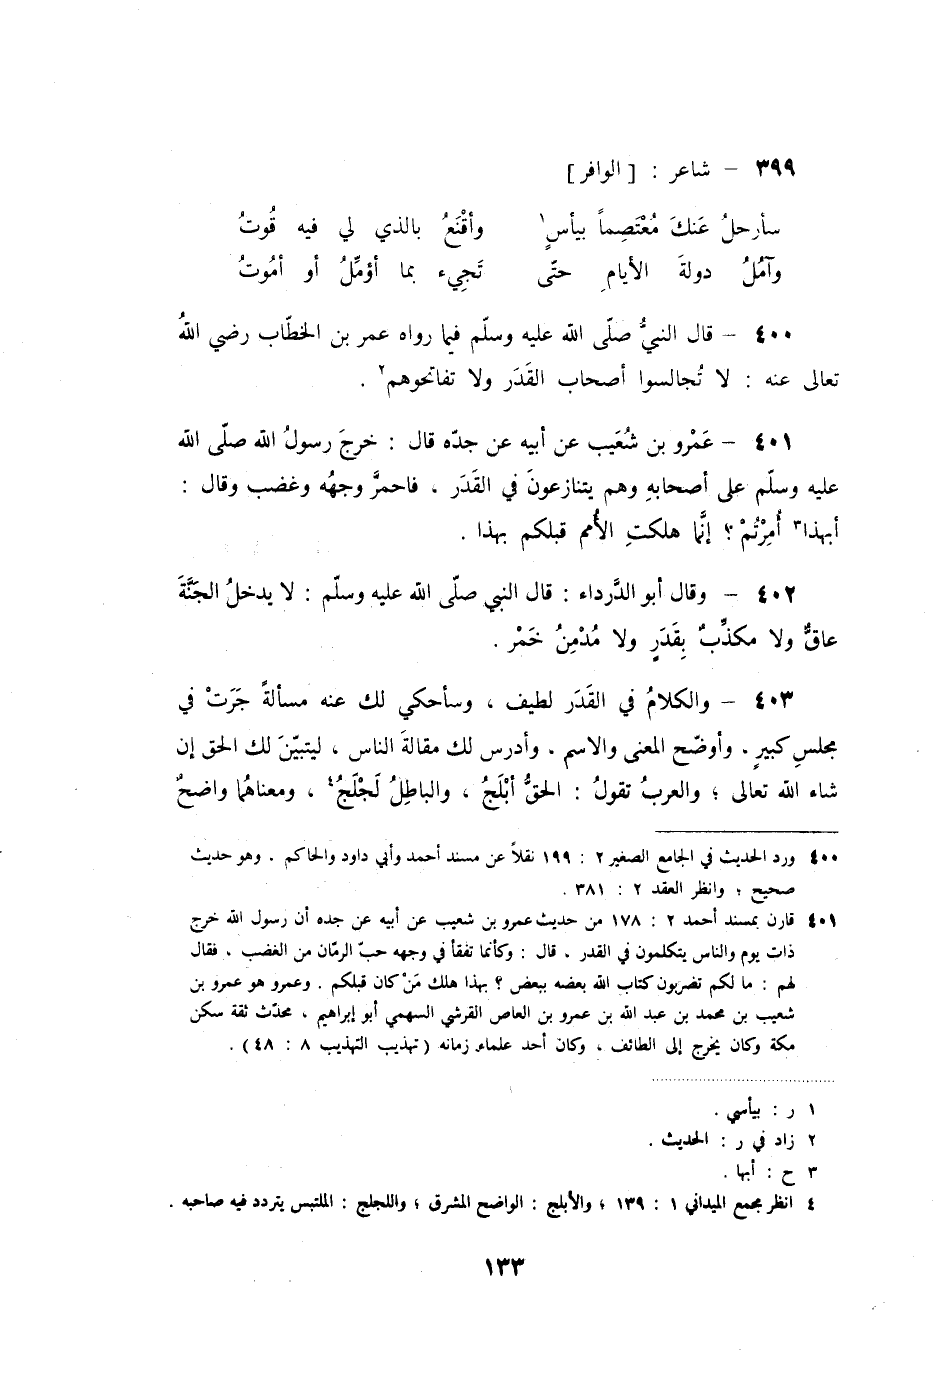 ٣٩٩ – شاعر : [ الوافر ]
سأرحلُ عَنكَ مُعْتَصِماً بيأسٍ١ وأقْنَعُ بالذي لي فيه قُوتُ
وآمُلُ دولةَ الأيامِ حتّى تَجِيء بما أؤمِّلُ أو أمُوتُ
٤٠٠ – قال النبيُّ صلّى الله عليه وسلّم فيما رواه عمر بن الخطّاب رضي اللهُ
تعالى عنه : لا تُجالسوا أصحاب القَدَر ولا تفاتحوهم٢ .
٤٠١ – عَمْرو بن شُعَيب عن أبيه عن جدّه قال : خرجَ رسولُ الله صلّى الله
عليه وسلّم على أصحابهِ وهم يتنازعونَ في القَدَر ، فاحمرَّ وجهُه وغضب وقال :
أبهذا٣ أُمِرْتُمْ ؟ إنَّما هلكتِ الأُمم قبلكم بهذا .
٤٠٢ – وقال أبو الدَّرداء : قال النبي صلّى الله عليه وسلّم : لا يدخلُ الجَنَّةَ
عاقٌّ ولا مكذِّبٌ بِقَدَرٍ ولا مُدْمِنُ خَمْر .
٤٠٣ – والكلامُ في القَدَر لطيف ، وسأحكي لك عنه مسألةً جَرَتْ في
مجلسِ كبيرٍ . وأوضّح المعنى والاسم . وأدرس لك مقالةَ الناس ، ليتبيّنَ لك الحق إن
شاء الله تعالى ؛ والعربُ تقولُ : الحقُّ أبْلَجُ ، والباطِلُ لَجْلَجُ٤ ، ومعناهُما واضحٌ
٤٠٠ ورد الحديث في الجامع الصغير ٢ : ١٩٩ نقلاً عن مسند أحمد وأبي داود والحاكم . وهو حديث
صحيح ؛ وانظر العقد ٢ : ٣٨١ .
٤٠١ قارن بمسند أحمد ٢ : ١٧٨ من حديث عمرو بن شعيب عن أبيه عن جده أن رسول الله خرج
ذات يوم والناس يتكلمون في القدر . قال : وكأنما تفقأ في وجهه حبّ الرمّان من الغضب . فقال
لهم : ما لكم تضربون كتاب الله بعضه ببعض ؟ بهذا هلك مَنْ كان قبلكم . وعمرو هو عمرو بن
شعيب بن محمد بن عبد الله بن عمرو بن العاص القرشي السهمي أبو إبراهيم ، محدّث ثقة سكن
مكة وكان يخرج إلى الطائف ، وكان أحد علماء زمانه ( تهذيب التهذيب ٨ : ٤٨ ) .
١ ر : بيأسي .
٢ زاد في ر : الحديث .
٣ ح : أبها .
٤ انظر مجمع الميداني ١ : ١٣٩ ؛ والأبلج : الواضح المشرق ؛ واللجلج : الملتبس يتردد فيه صاحبه .
١٣٣